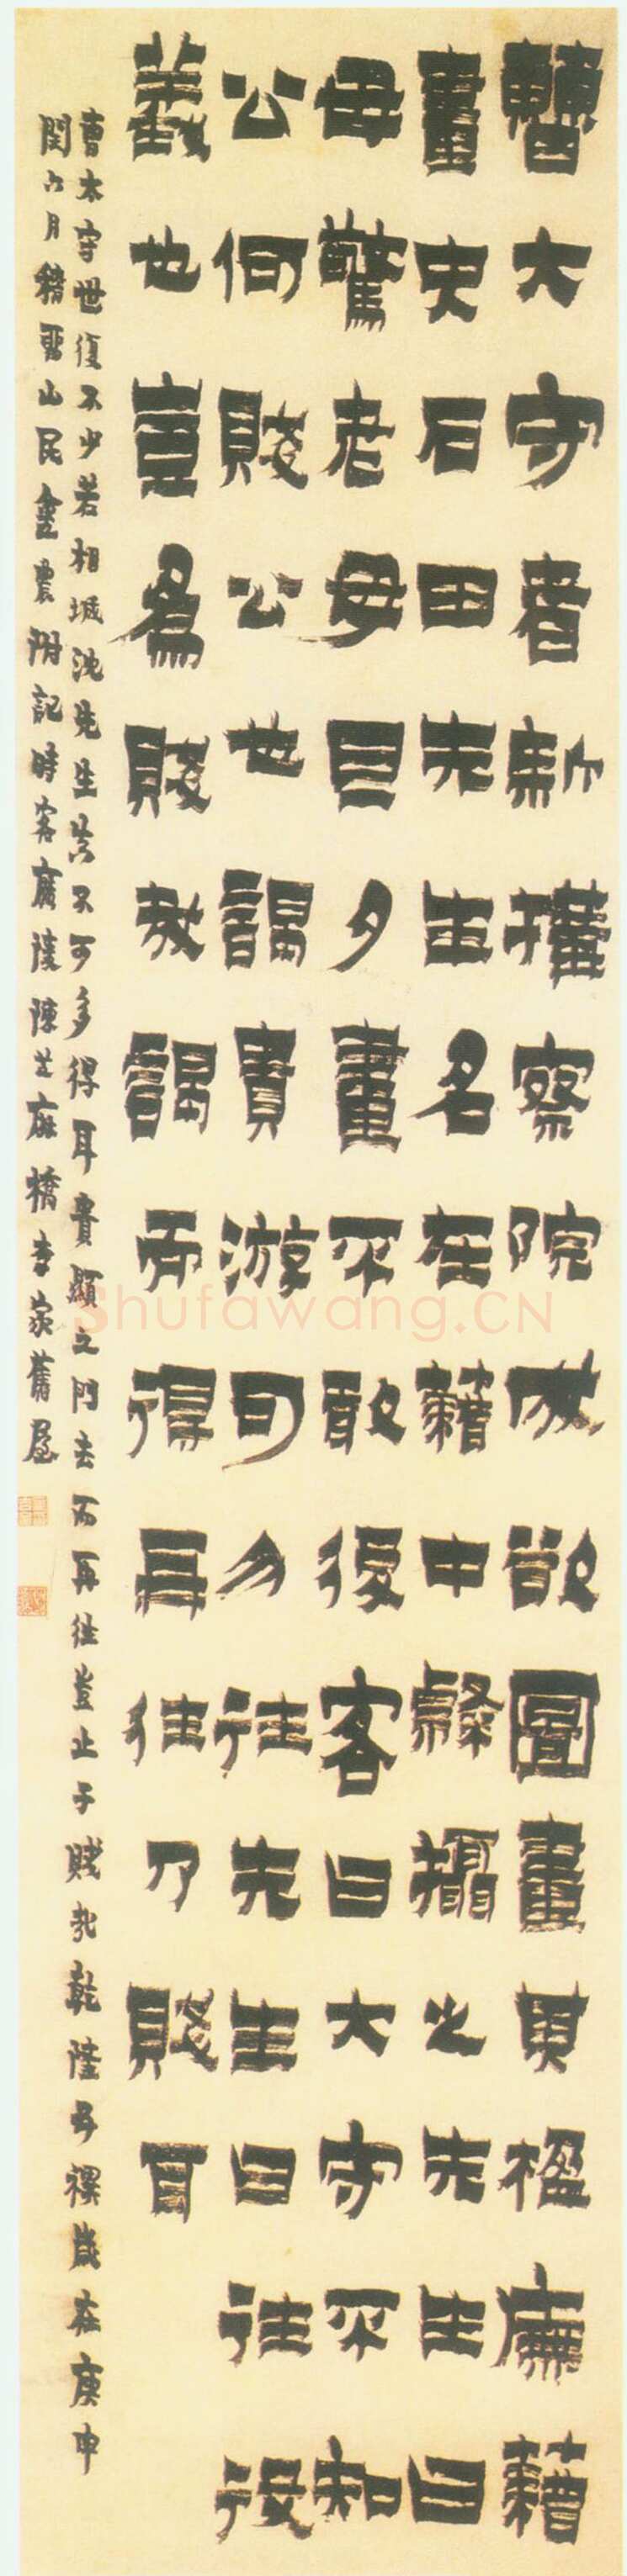 曹大守者新搆察院成欲圖畫其楹廡藉
畫史石田先生名在藉中隸攝之先生曰
毋驚老母旦夕畫不敢後客曰大守不知
公何賤公也謁貴游可勿往先生曰往役
義也豈為賤哉謁而得再往乃賤耳
曹太守世復不少若相城沈先生真不可多得耳貴顯之門去而再往豈止于賤哉乾隆五禩歲在庚申
閏六月稽畱山民金農附記時客廣陵陳芝麻橋李家舊屋
Shufawang.CN